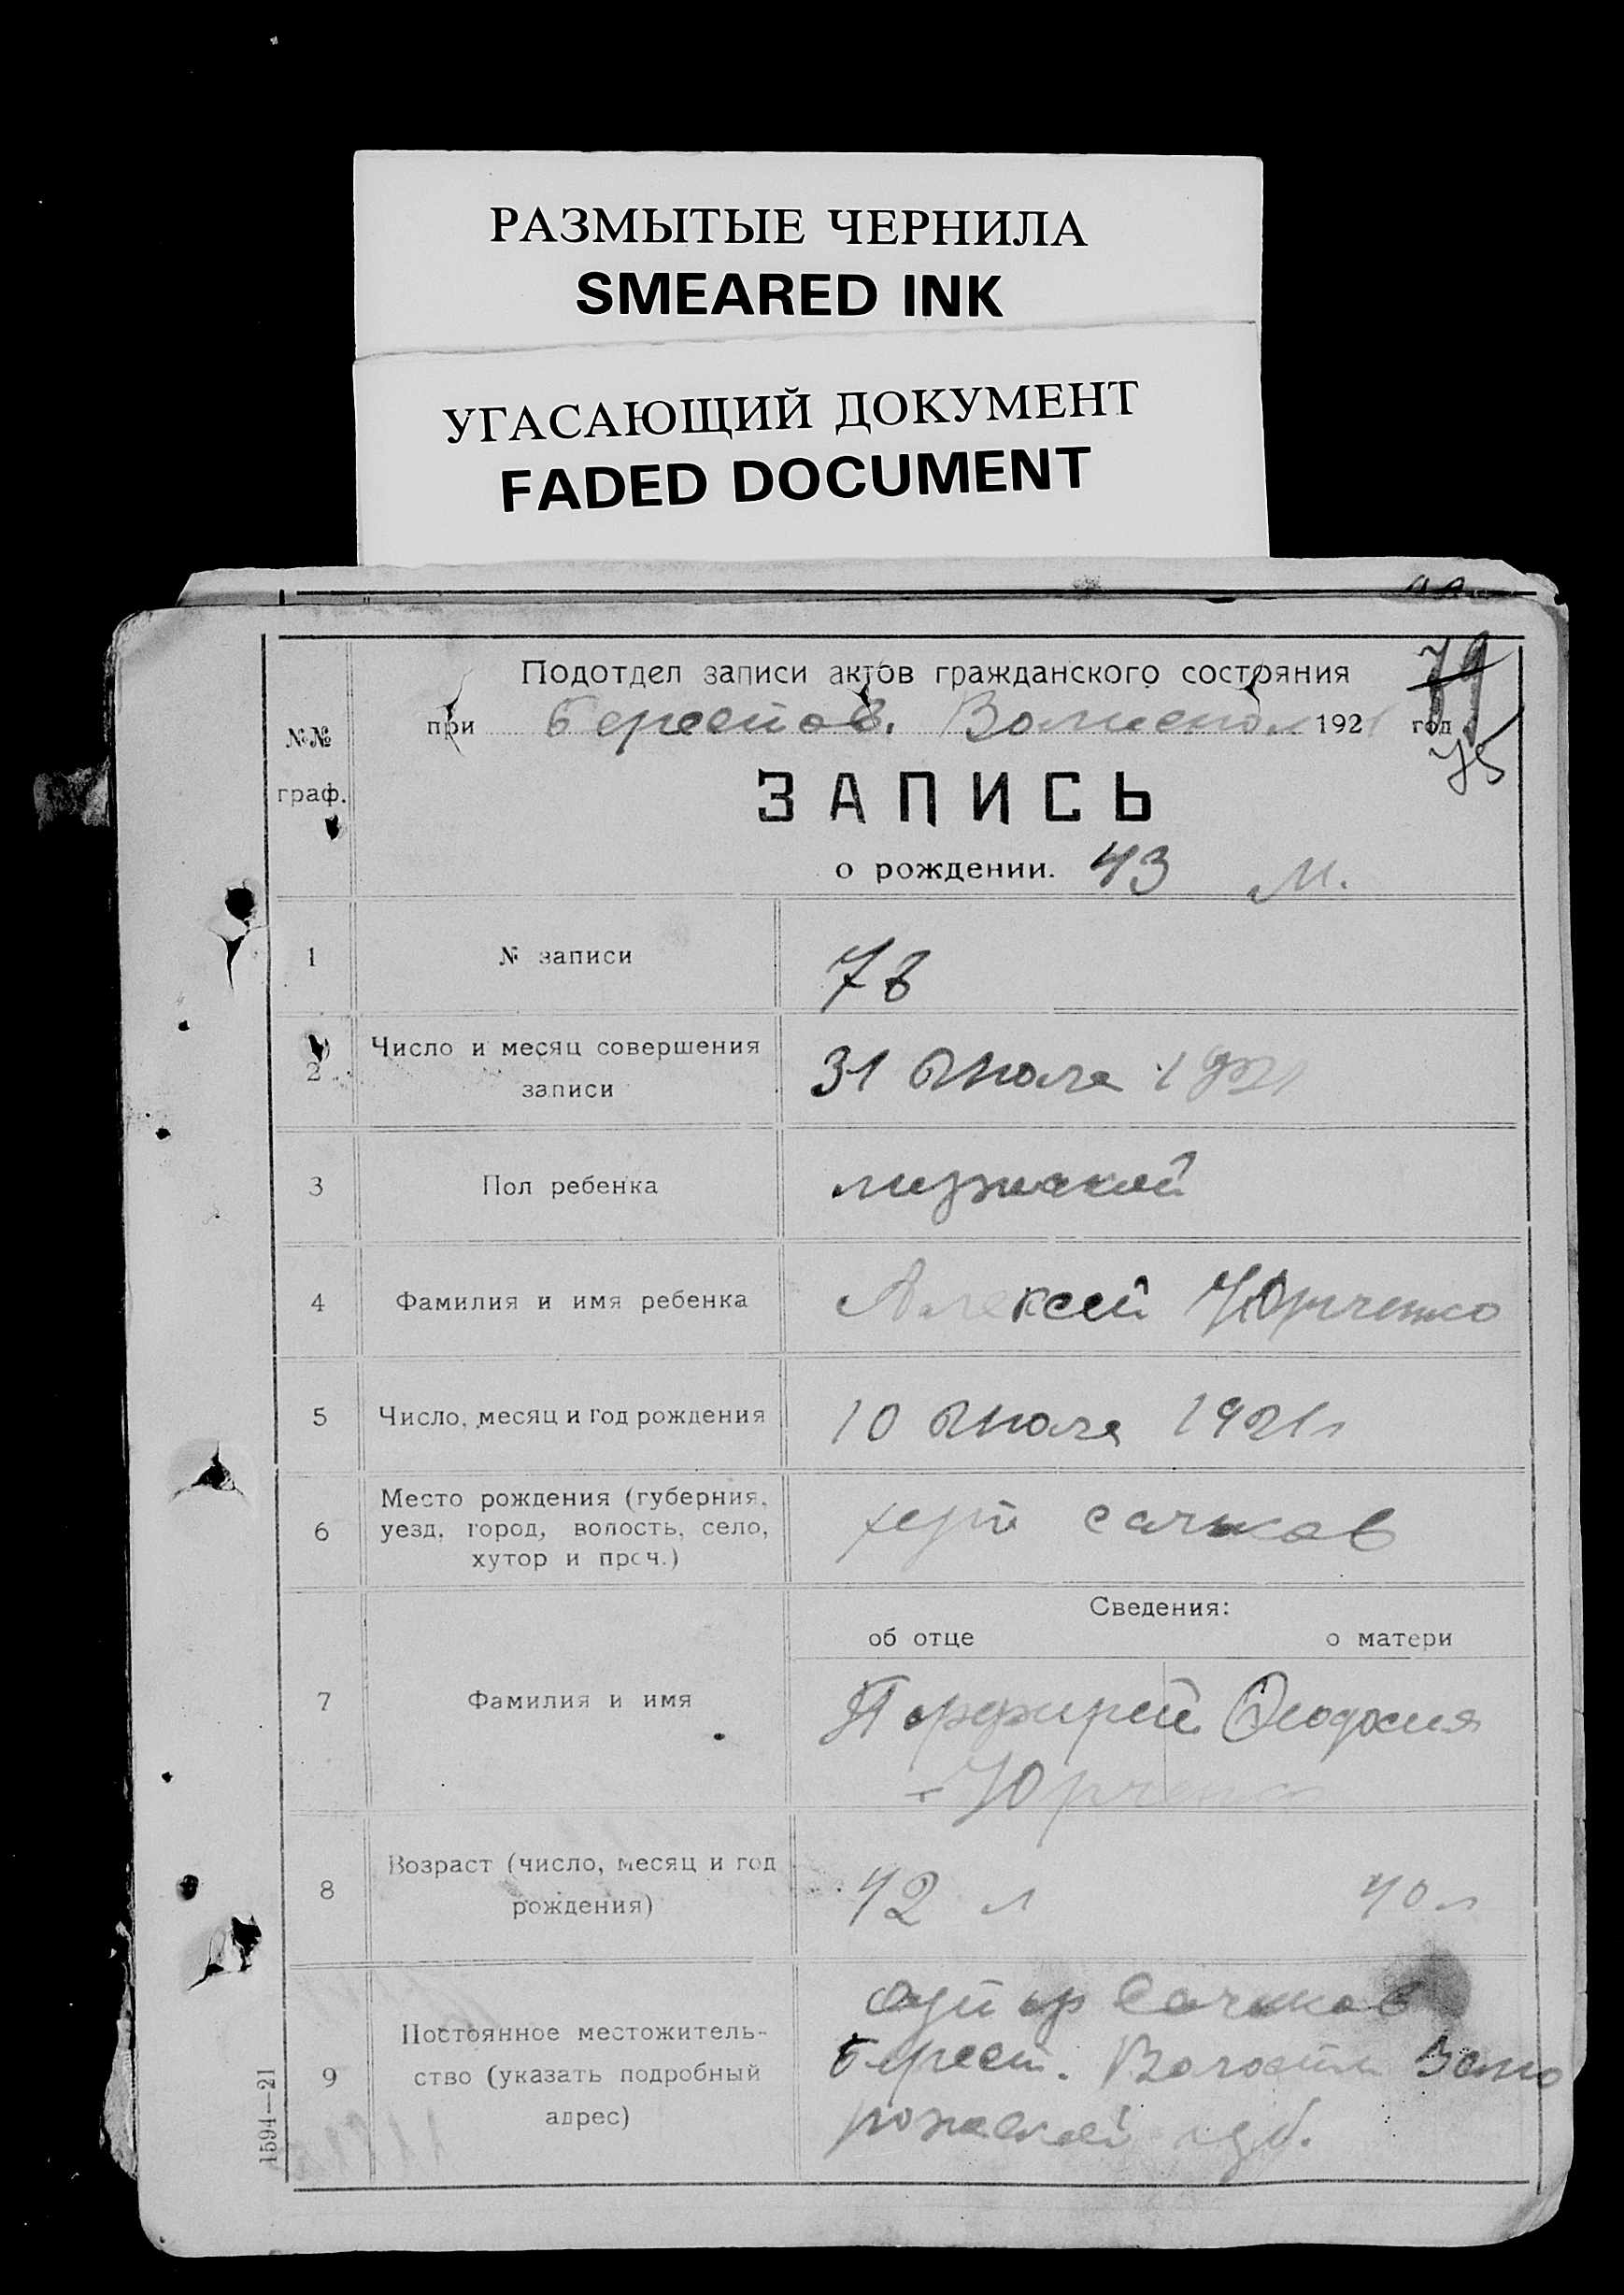 РАЗМЫТЫЕ ЧЕРНИЛА
SMEARED INK
УГАСАЮЩИЙ ДОКУМЕНТ
FADED DOCUMENT
79
Подотдел записи актов гражданского состояния
при Берестов. 1921 год
75
№№
граф.
ЗАПИСЬ
о рождении. 43 м.
1 № записи 78
2 Число и месяц совершения
записи
31 Июля 1921
3 Пол ребенка мужской
4 Фамилия и имя ребенка Алексей Юрченко
5 Число, месяц и год рождения 10 Июля 1921г
6 Место рождения (губерния,
уезд, город, волость, село,
хутор и проч.)
хут
Сведения:
об отце о матери
7 Фамилия и имя Порфирий Феодосия
Юрченко
8 Возраст (число, месяц и год
рождения)
42 л 40 л
9 Постоянное местожитель-
ство (указать подробный
адрес)
хутор
Берест. Волости Запо
рожской губ.
1594—21